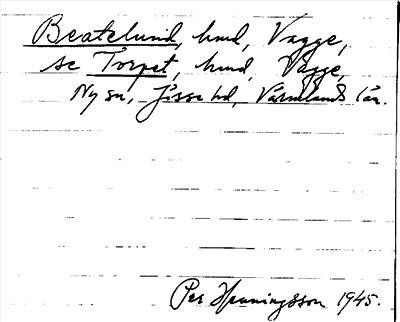 Beatelund, hmd, Vagge,
se Torpet, hmd, Vagge,
Ny sn, Jösse hd, Värmlands län.
Per Henningsson 1945.